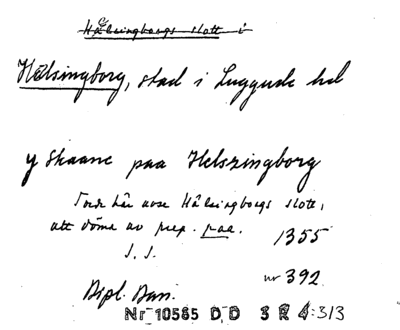 Hälsingborgs slott i
Hälsingborg, stad i Luggude hd
y Skaane paa Helszingborg
Torde här avse Hälsingborgs slott,
att döma av prep. paa.
1355
S. S.
nr 392
Dipl. Dan.
Nr 10585 DD 3 R 4:313